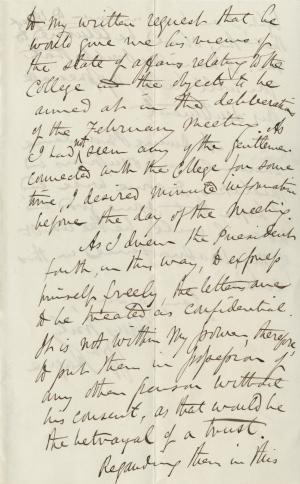 to my written request that he
would give me his views of
the state of affairs relating to the
College and the objects to be
aimed at in the deliberations
of the February meeting. As
I had not seen any of the gentlemen
connected with the College for some
time, I desired minute information
before the day of the Meeting.
As I drew the President
forth, in this way, to express
himself freely, the letters are
to be treated as confidential.
It is not within my power, therefore,
to put them in possession of
any other person without
his consent, as that would be
the betrayal of a trust.
Regarding them in this